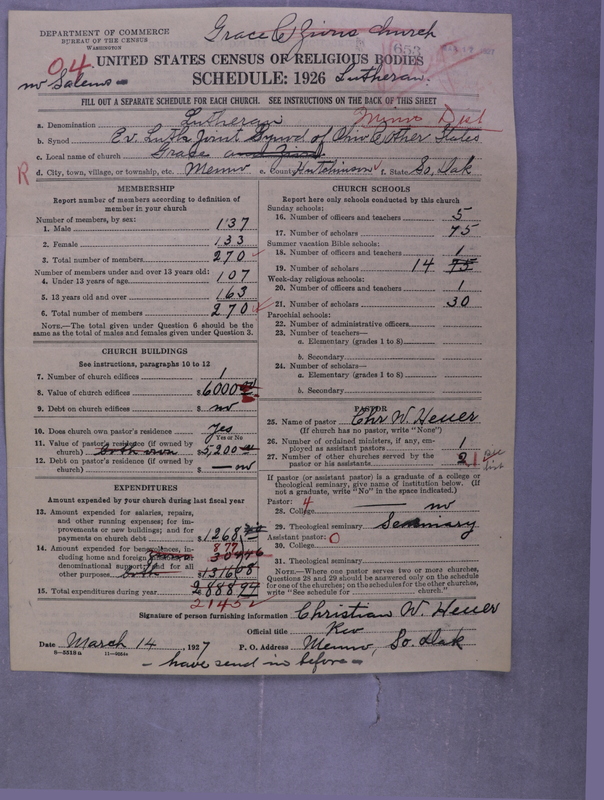 Grace & Zions Church
DEPARTMENT OF COMMERCE
BUREAU OF THE CENSUS
WASHINGTON
653
04
UNITED STATES CENSUS OF RELIGIOUS BODIES
no Salems
SCHEDULE: 1926 Lutheran.
FILL OUT A SEPARATE SCHEDULE FOR EACH CHURCH. SEE INSTRUCTIONS ON THE BACK OF THIS SHEET
a. Denomination Lutheran
b. Synod Ev. Luth Joint Synod of Ohio & Other States
c. Local name of church Grace
R d. City, town, village, or township, etc. Menno e. County Hutchinson f. State So. Dak
MEMBERSHIP
Report number of members according to definition of member in your church
Number of members, by sex:
1. Male 137
2. Female 133
3. Total number of members 270
Number of members under and over 13 years old:
4. Under 13 years of age 107
5. 13 years old and over 163
6. Total number of members 270
NOTE.—The total given under Question 6 should be the same as the total of males and females given under Question 3.
CHURCH BUILDINGS
See instructions, paragraphs 10 to 12
7. Number of church edifices 1
8. Value of church edifices $6000
9. Debt on church edifices $ no
10. Does church own pastor's residence? yes
Yes or No
11. Value of pastor's residence (if owned by church) both own $5,200
12. Debt on pastor's residence (if owned by church) $ — no
EXPENDITURES
Amount expended by your church during last fiscal year
13. Amount expended for salaries, repairs, and other running expenses; for improvements or new buildings; and for payments on church debt $1268
14. Amount expended for benevolences, including home and foreign missions; denominational support; and for all other purposes both 877
15. Total expenditures during year
2145
CHURCH SCHOOLS
Report here only schools conducted by this church
Sunday schools:
16. Number of officers and teachers 5
17. Number of scholars 75
Summer vacation Bible schools:
18. Number of officers and teachers 1
19. Number of scholars 14 75
Week-day religious schools:
20. Number of officers and teachers 1
21. Number of scholars 30
Parochial schools:
22. Number of administrative officers
23. Number of teachers—
a. Elementary (grades 1 to 8)
b. Secondary
24. Number of scholars—
a. Elementary (grades 1 to 8)
b. Secondary
PASTOR
25. Name of pastor Chr W. Heuer
(If church has no pastor, write "None")
26. Number of ordained ministers, if any, employed as assistant pastors 1
27. Number of other churches served by the pastor or his assistants 2 1
If pastor (or assistant pastor) is a graduate of a college or theological seminary, give name of institution below. (If not a graduate, write "No" in the space indicated.)
Pastor: 4
28. College no
29. Theological seminary Seminary
Assistant pastor: 0
30. College
31. Theological seminary
NOTE.—Where one pastor serves two or more churches, Questions 28 and 29 should be answered only on the schedule for one of the churches; on the schedules for the other churches, write "See schedule for church."
Signature of person furnishing information Christian W. Heuer
Official title Rev
Date March 14, 1927 P. O. Address Menno, So. Dak
8—5513a
— have send in before —